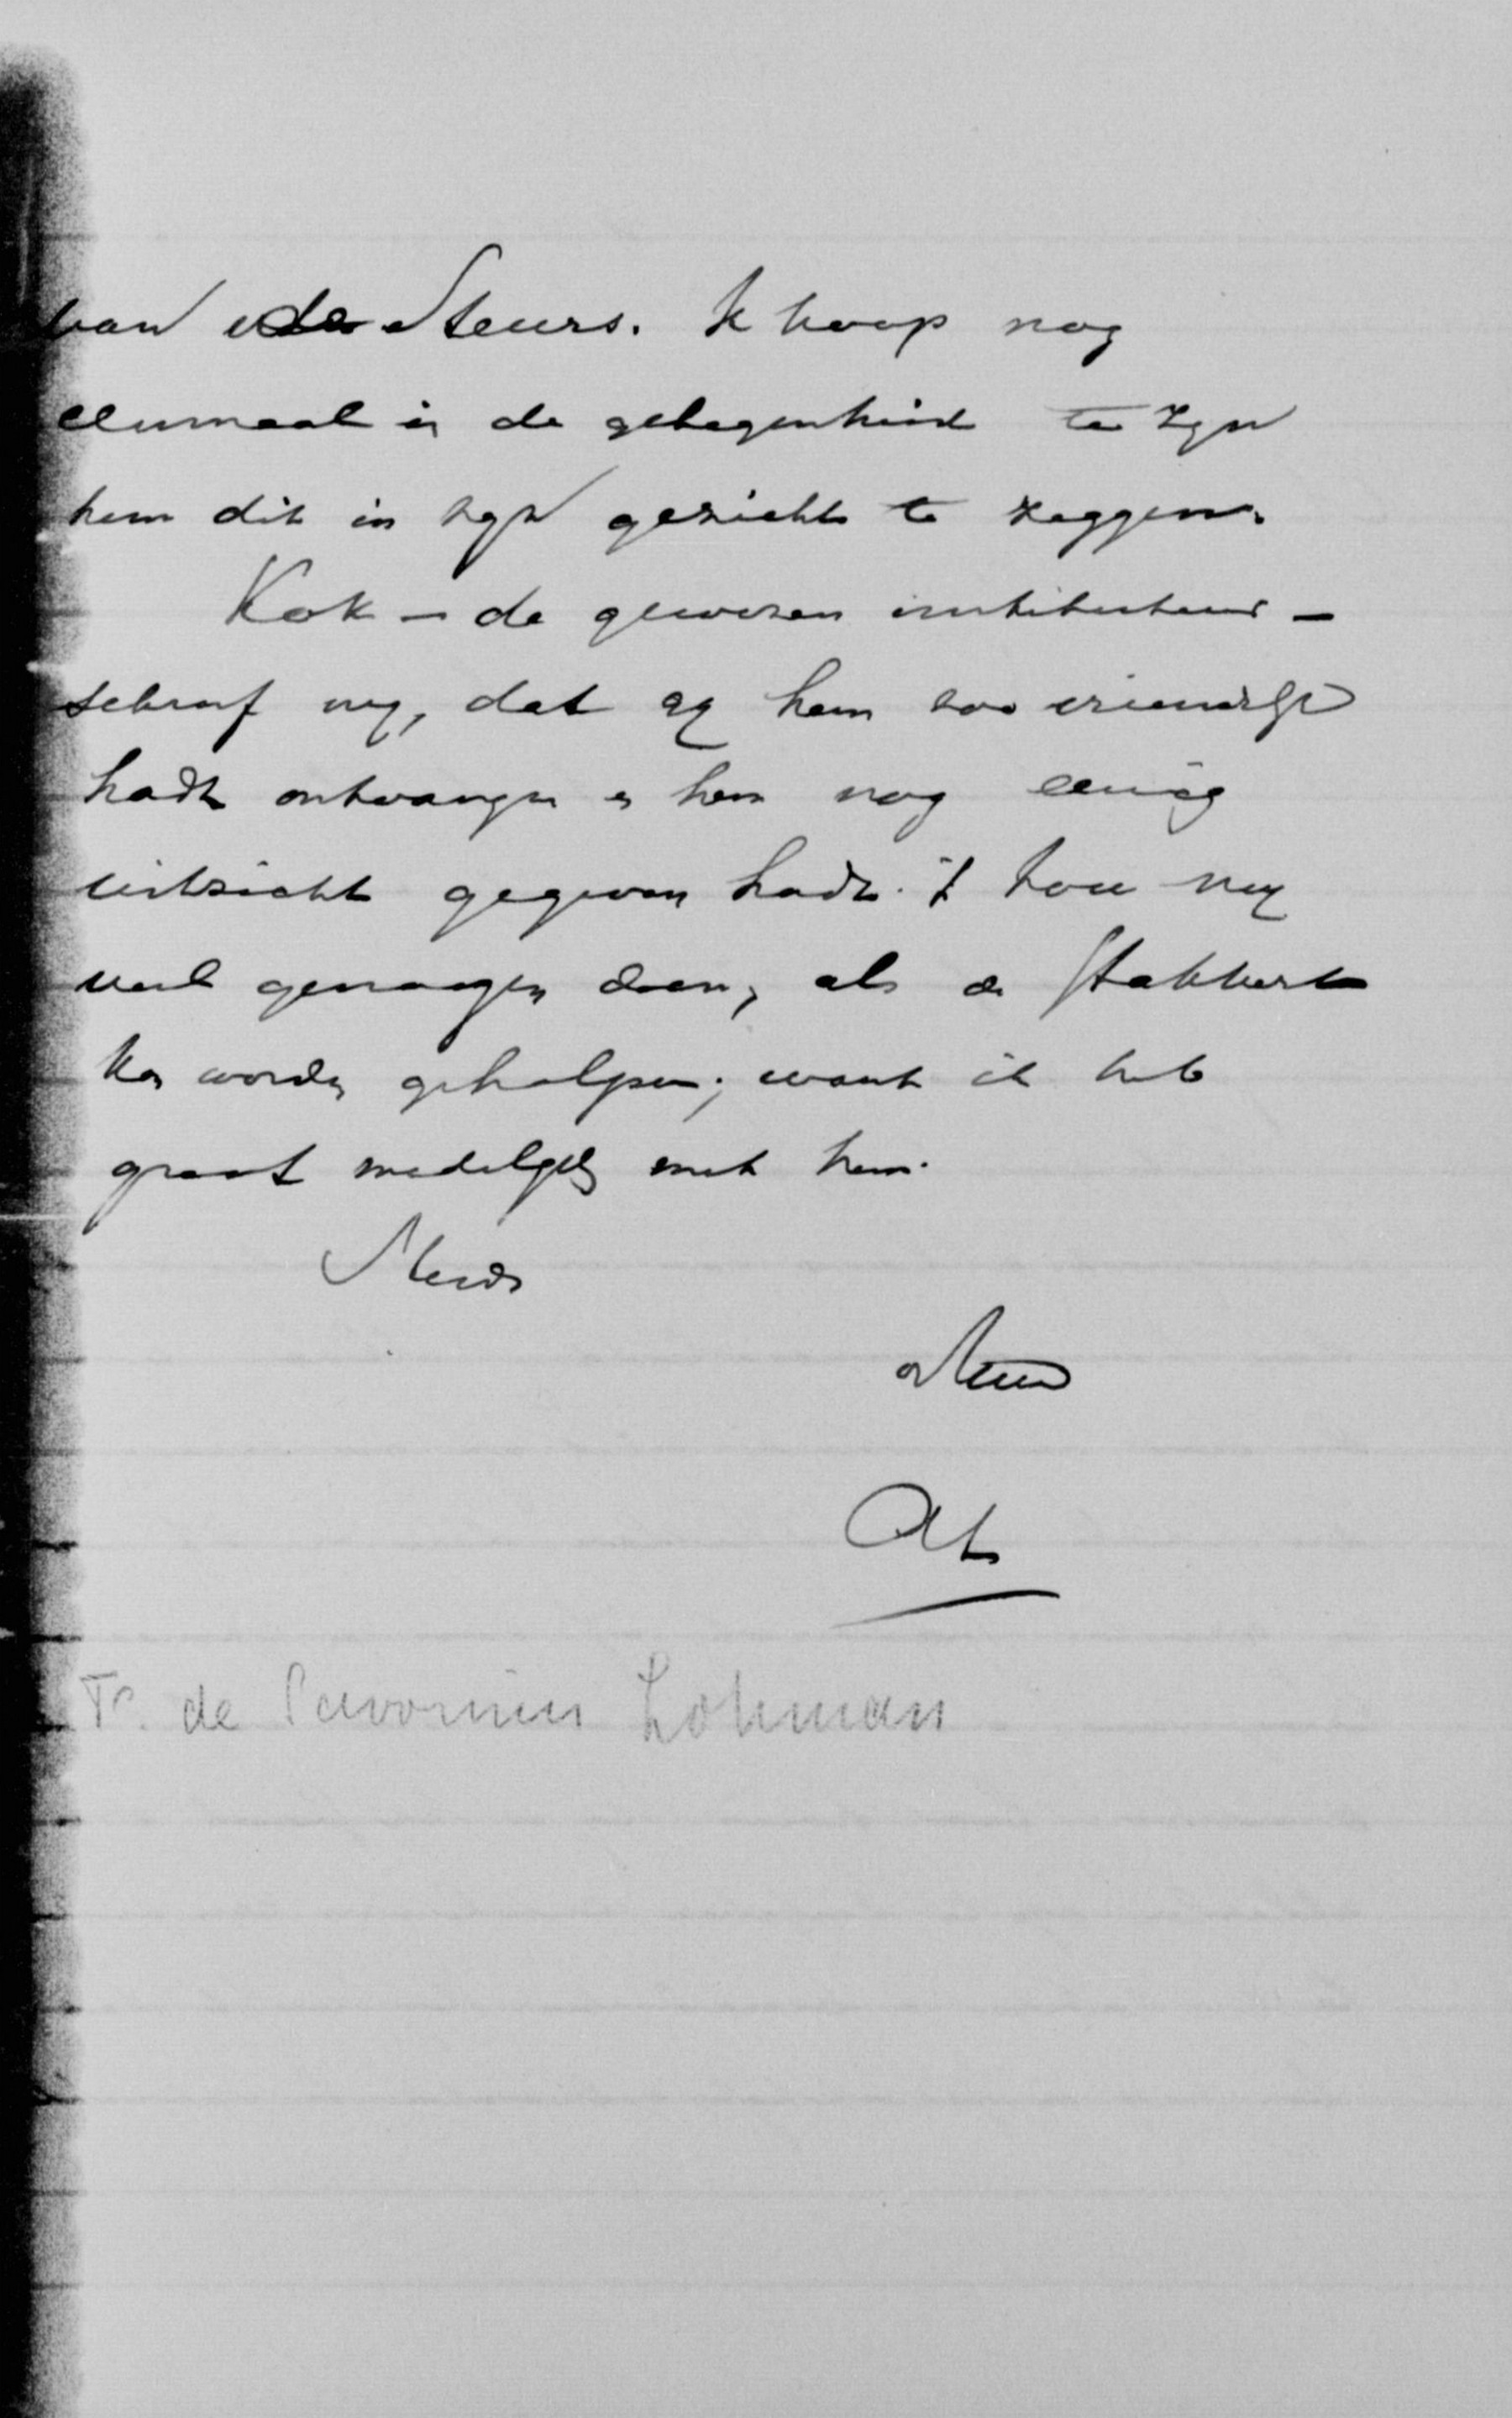 van de Steurs. Ik hoop nog
eenmaal in de gelegenheid te zyn
hem dit in zyn gezicht te zeggen.
Kok – de gewezen instituteur –
schreef my, dat gy hem zoo vriendelyk
hadt ontvangen en hem nog eenig
uitzicht gegeven hadt. 't zou my
veel genoegen doen, als de stakkert
kan worden geholpen; want ik heb
groot medelyden met hem.
Steeds
de Savornin Lohman